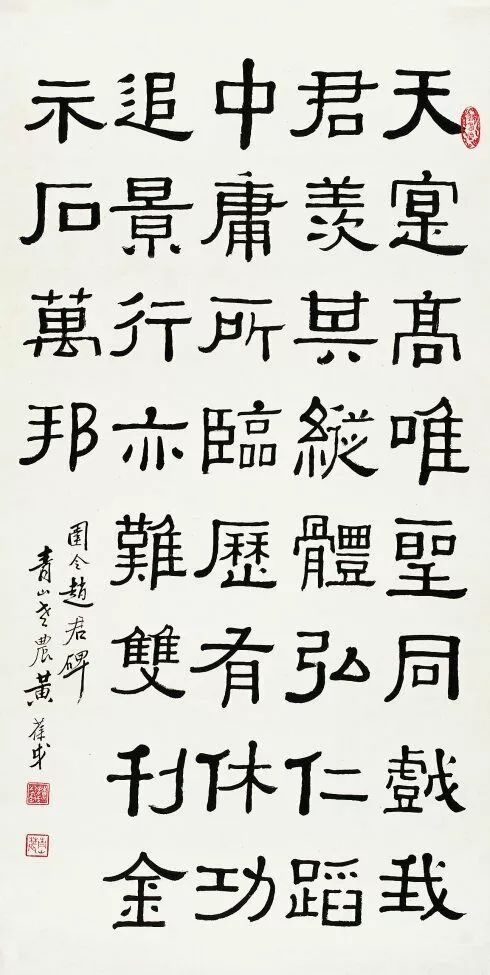 天寔高唯聖同戲我
君羨其縱體弘仁蹈
中庸所臨歷有休功
追景行亦難雙刊金
示石萬邦
圉令趙君碑
青山老農黃葆戉